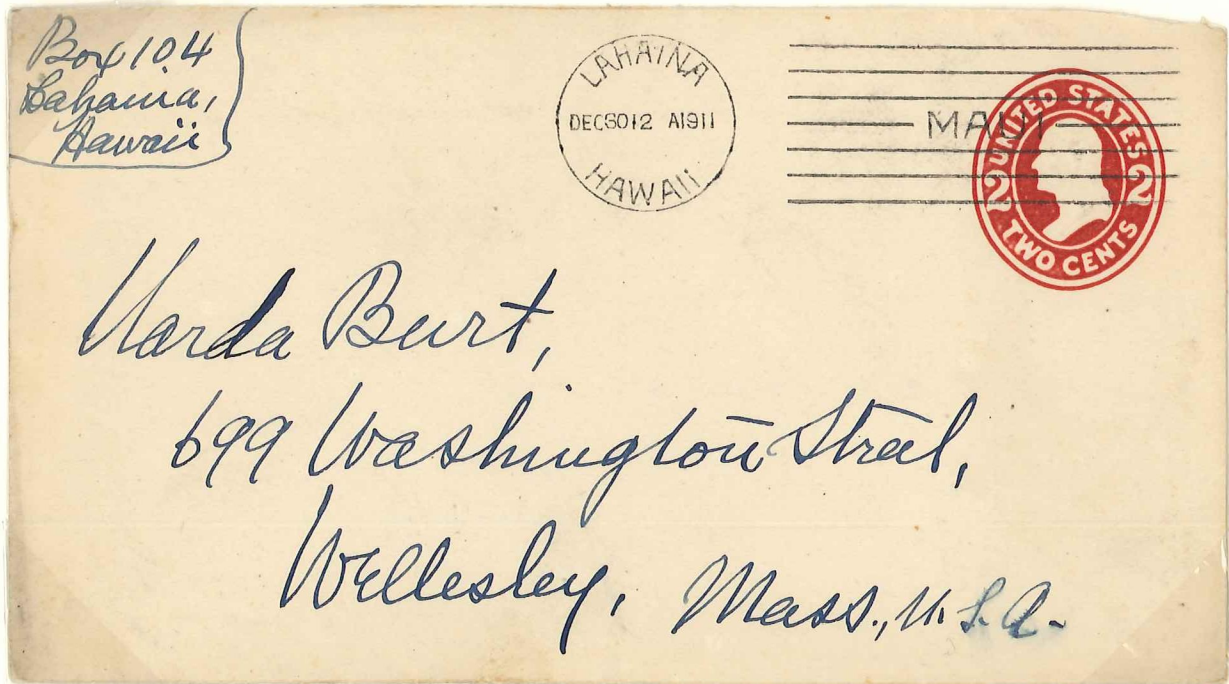 Box 104
Lahaina,
Hawaii
LAHAINA
DEC3012 A1911
HAWAII
MAUI
UNITED STATES
2 2
TWO CENTS
Varda Burt,
699 Washington Street,
Wellesley, Mass., U.S.A.